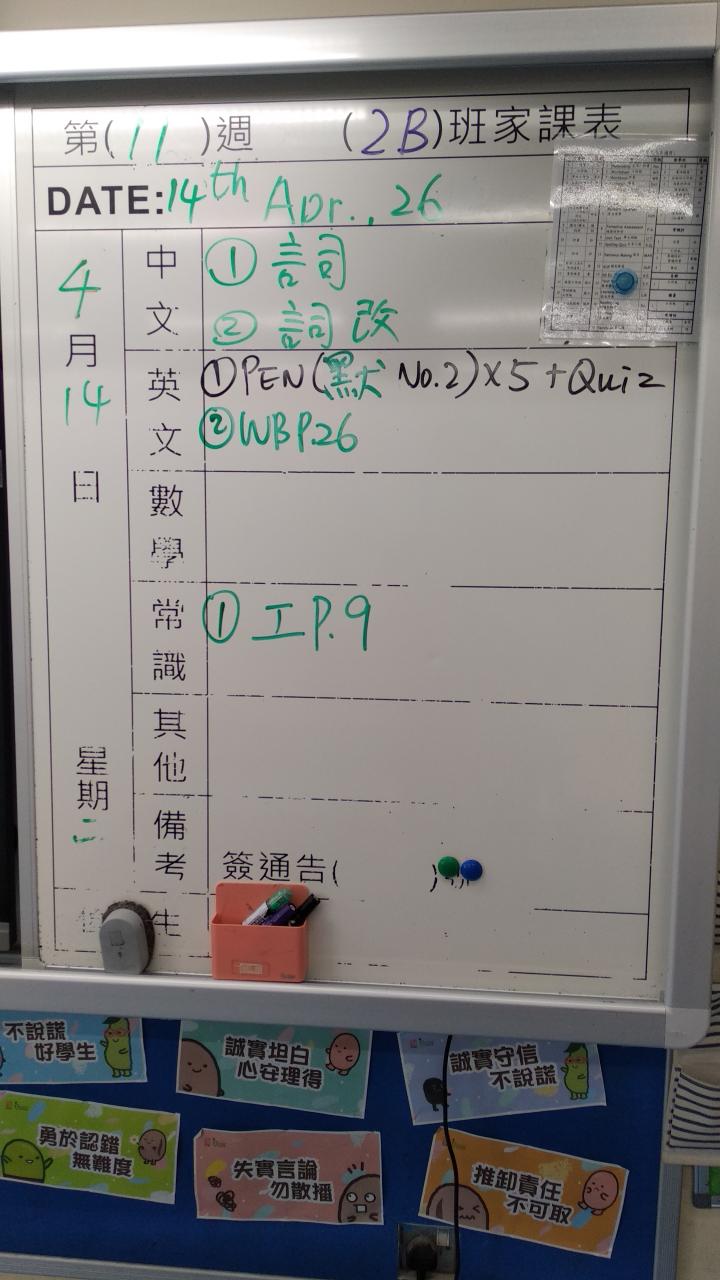 第(11)週 (2B)班家課表
DATE:14th Apr., 26
4月14日 星期二
中文
① 詞
② 詞改
英文
①PEN(默 No.2)×5+Quiz
②WB P.26
數學
常識
① 工P.9
其他
備考
簽通告( )
生
不說謊
好學生
誠實坦白
心安理得
誠實守信
不說謊
勇於認錯
無難度
失實言論
勿散播
推卸責任
不可取